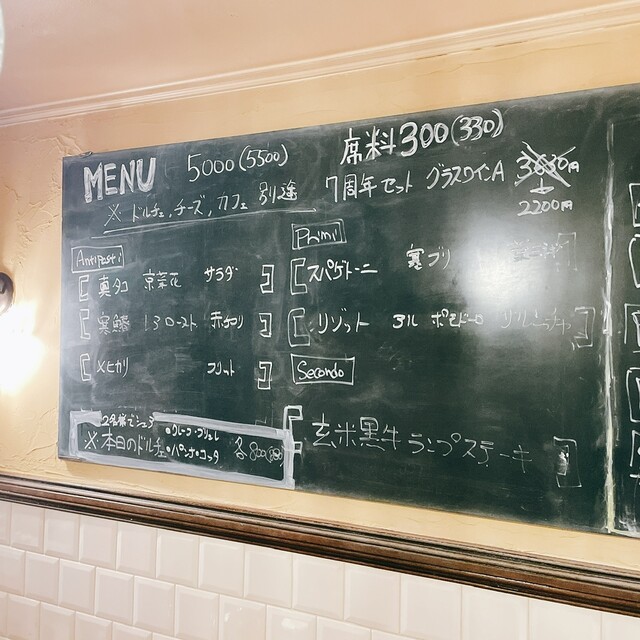 MENU 5000(5500) 席料300(330)
7周年セット グラスワインA 3630円
↓
2200円
※ ドルチェ,チーズ,カフェ 別途
Antipasti
真タコ 京菜花 サラダ
寒鰆 ロースト
メヒカリ フリット
2名様でシェア
※本日のドルチェ
・パンナ・コッタ
各800(880)
Primi
スパゲトーニ 寒ブリ
リゾット アル ポモドーロ
Secondo
玄米黒牛 ランプステーキ